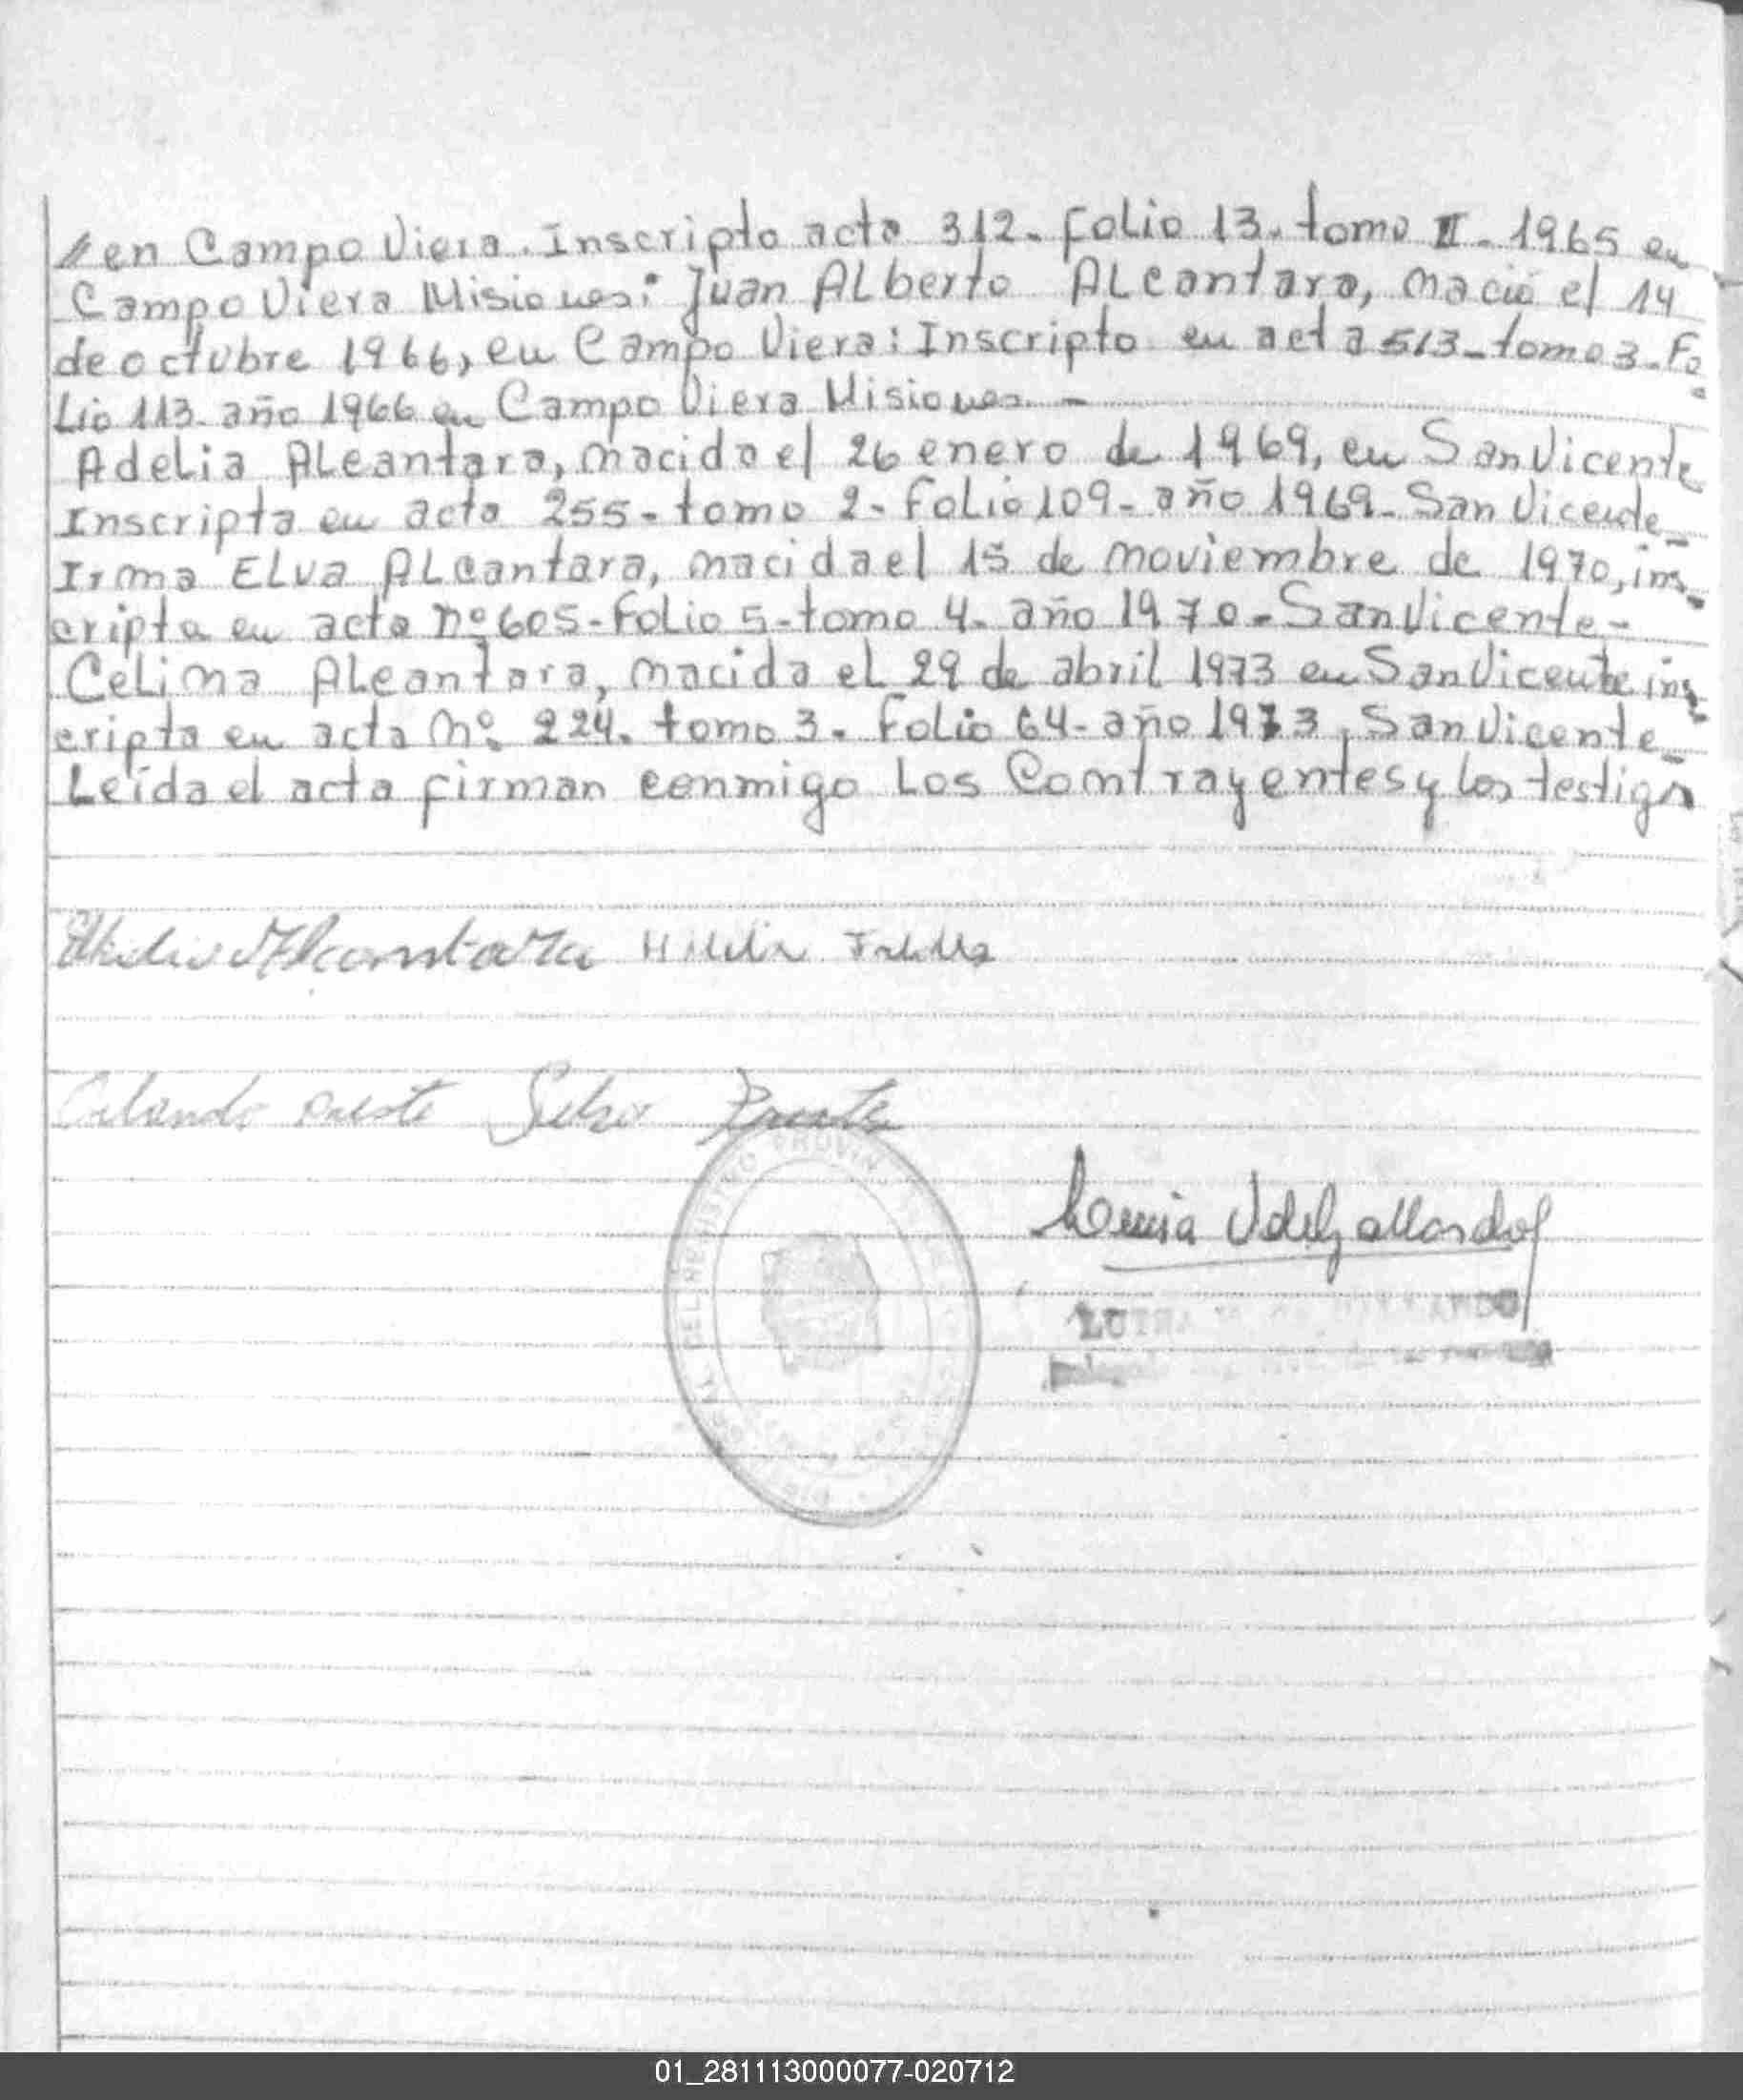 // en Campo Viera. Inscripto acta 312. Folio 13. tomo II. 1965 en
Campo Viera Misiones: Juan ALberto ALcantara, nació el 14
de octubre 1966, en Campo Viera: Inscripto en acta 513-tomo 3-Fo
Lio 113. año 1966 en Campo Viera Misiones. -
Adelia ALcantara, nacida el 26 enero de 1969, en San Vicente
Inscripta en acta 255-tomo 2-Folio 109-año 1969-San Vicente-
Irma ELva ALcantara, nacida el 15 de noviembre de 1970, ins-
cripta en acta nº 605-Folio 5-tomo 4. año 1970-San Vicente-
CeLima ALcantara, nacida eL 29 de abril 1973 en San Vicente ins-
cripta en acta Nº. 224. tomo 3. Folio 64-año 1973, San Vicente-
Leída el acta firman conmigo Los Contrayentes y los testigos
Alcantara
Orlando
DEL REGISTRO PROVIN
01_281113000077-020712